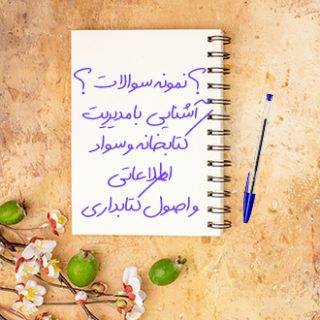 ؟ نمونه سوالات ؟
آشنایی با مدیریت
کتابخانه و سواد
اطلاعاتی
و اصول کتابداری